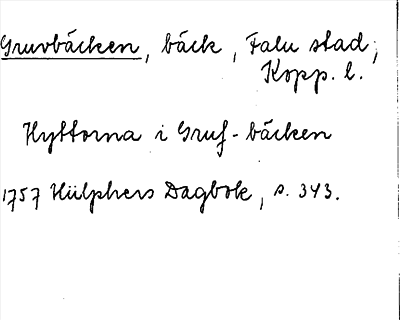 Gruvbäcken, bäck, Falu stad;
Kopp. l.
Hyttorna i Gruf-bäcken
1757 Hülphers Dagbok, s. 343.